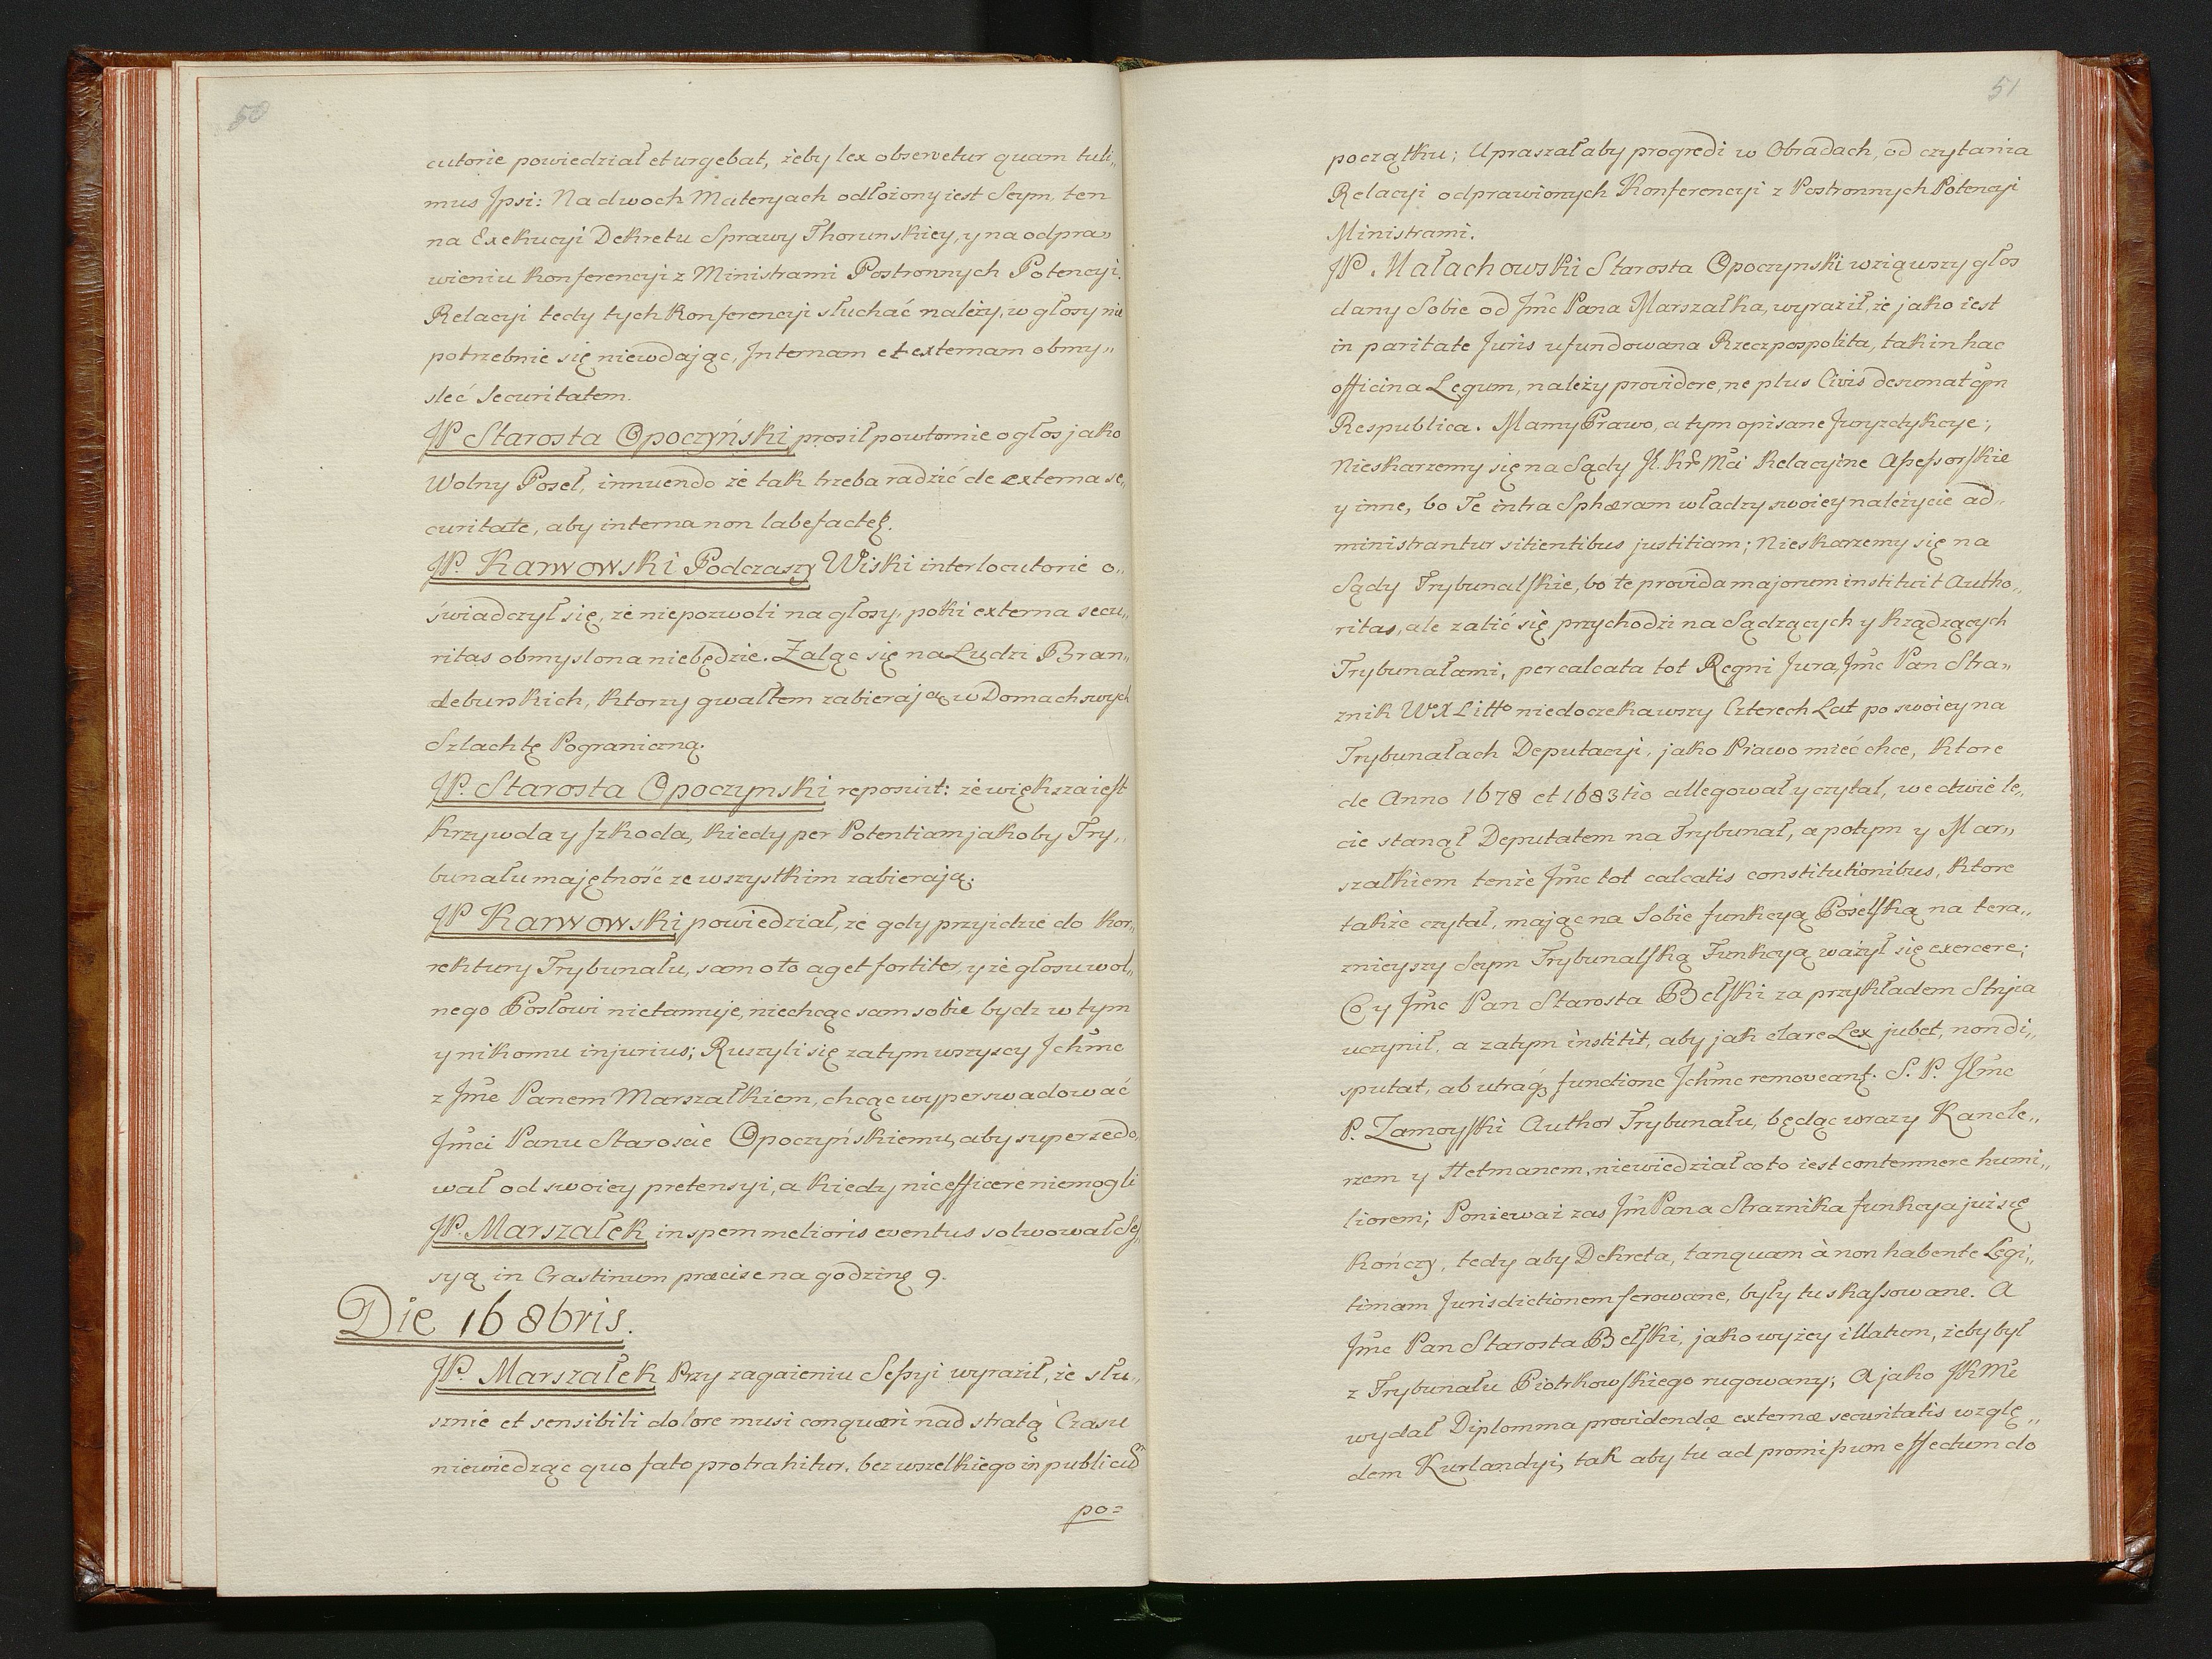 50
cutorie powiedział et urgebat, żeby lex observetur quam tuli„
mus Ipsi: Na dwoch Materyach odłożony iest Seym, ten
na Exekucyi Dekretu Sprawy Thorunskiey, y na odpra„
wieniu Konferencyi z Ministrami Postronnych Potencyi.
Relacyi tedy tych Konferencyi słuchać należy, w głosy nie
potrzebnie się niewdając, Internam et externam obmy„
sleć Securitatem.
JP Starosta Opoczyński prosił powtornie o głos jako
Wolny Poseł, innuendo że tak trzeba radzić de externa se„
curitate, aby interna non labefactet.
JP. Karwowski Podczaszy Wiski interlocutorie o„
świadczył się, że niepozwoli na głosy, poki externa secu„
ritas obmyslona niebędzie. Zaląc się na Ludzi Bran„
deburskich, ktorzy gwałtem zabierają w Domach swych
Szlachtę Pograniczną.
JP. Starosta Opoczynski reposuit: że większa iest
krzywda y szkoda, kiedy per Potentiam jakoby Try„
bunału majętność ze wszystkim zabierają.
JP Karwowski powiedział, że gdy przyidzie do kor„
rektury Trybunału, sam oto aget fortiter, y że głosu wol„
nego Posłowi nietamuje, niechcąc sam sobie bydz w tym
y nikomu injurius; Ruszyli się zatym wszyscy Jchmc
z Jmc Panem Marszałkiem, chcąc wyperswadować
Jmci Panu Staroscie Opoczyńskiemu, aby supersedo„
wał od swoiey pretensyi, a kiedy nic efficere niemogli
JP. Marszałek in spem melioris eventus solwował Ses„
syą in Crastinum præcise na godzinę 9.
Die 16 8bris.
JP. Marszałek Przy zagaieniu Sessyi wyraził, że słu„
sznie et sensibili dolore musi conquæri nad stratą Czasu
niewiedząc quo fato protrahitur, bez wszelkiego in publicum
po=
51
początku; Upraszał aby progredi w Obradach, od czytania
Relacyi odprawionych Konferencyi z Postronnych Potencyi
Ministrami.
JP. Małachowski Starosta Opoczynski wziąwszy głos
dany Sobie od Jmc Pana Marszałka, wyraził, że jako iest
in paritate Juris ufundowana Rzeczpospolita, tak in hac
officina Legum, należy providere, ne plus Civis desumat qm
Respublica. Mamy Prawo, a tym opisane Juryzdykcye;
Nieskarzemy się na Sądy J. Kr Mci Relacyine Assessorskie
y inne, bo Te intra Sphæram władzy swoiey należycie ad„
ministrantur sitientibus justitiam; Nieskarzemy się na
Sądy Trybunalskie, bo te provida majorum instituit Autho„
ritas, ale zalić się przychodzi na Sądzących y Rządzących
Trybunałami, percalcata tot Regni Jura, Jmc Pan Stra„
znik W X Litto niedoczekawszy Czterech Lat po swoiey na
Trybunałach Deputacyi, jako Prawo mieć chce, ktore
de Anno 1678 et 1683tio allegował y czytał, we dwie le„
cie stanął Deputatem na Trybunał, a potym y Mar„
szałkiem tenże Jmc tot calcatis constitutionibus, ktore
także czytał, mając na Sobie funkcyą Poselską na tera„
znieyszy Seym Trybunalską Funkcyą ważył się exercere;
Co y Jmc Pan Starosta Bełski za przykładem Stryia
uczynił, a zatym institit, aby jak clare Lex jubet, non di„
sputat, ab utráq functione Jchmc removeant. S. P. Jmc
P. Zamoyski Author Trybunału, będąc wrazy Kancle„
rzem y Hetmanem, niewiedział co to iest contemnere humi„
liorem; Ponieważ zas Jm Pana Straznika funkcya już się
kończy, tedy aby Dekreta, tanquam à non habente Legi„
timam Jurisdictionem ferowane, były tu skassowane. A
Jmc Pan Starosta Bełski, jako wyżey illatum, żeby był
z Trybunału Piotrkowskiego rugowany; A jako JKMc
wydał Diplomma providendæ externæ securitatis wzglę„
dem Kurlandyi, tak aby tu ad promissum effectum do